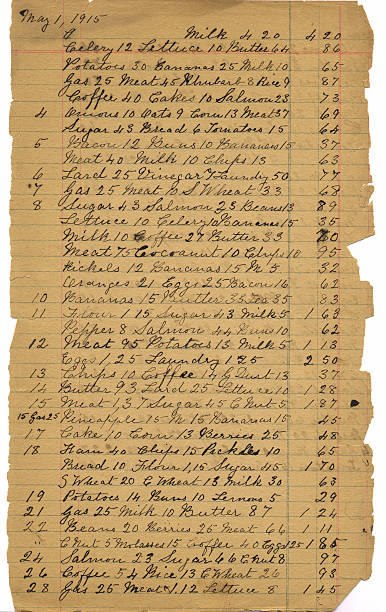 May 1, 1915
C Milk 4 20 4 20
Celery 12 Lettuce 10 Butter 64 86
Potatoes 30 Bananas 25 Milk 10 65
Gas 25 Meat 45 Rhubarb 8 Rice 9 87
Coffee 40 Cakes 10 Salmon 23 73
4 Onions 10 Oats 9 Corn 13 Meat 37 69
Sugar 43 Bread 6 Tomatoes 15 64
5 Bacon 12 Buns 10 Bananas 15 37
Meat 40 Milk 10 Chips 13 63
6 Lard 25 Vinegar 2 Laundry 50 77
7 Gas 25 Meat 10 S Wheat 33 68
8 Sugar 43 Salmon 23 Beans 13 89
Lettuce 10 Celery 10 Bananas 15 35
Milk 10 Coffee 27 Butter 33 60
Meat 75 Cocoanut 10 Chips 10 95
Pickels 12 Bananas 15 M 5 32
Oranges 21 Eggs 25 Bacon 16 62
10 Bananas 15 Butter 33 Tea 35 83
11 Flour 1 15 Sugar 43 Milk 5 1 63
Pepper 8 Salmon 44 Buns 10 62
12 Meat 95 Potatoes 13 Milk 5 1 13
Eggs 1,25 Laundry 1 25 2 50
13 Chips 10 Coffee 14 G Dust 13 37
14 Butter 93 Lard 25 Lettuce 10 1 28
15 Meat 1,37 Sugar 45 C Nut 5 1 87
15 Gas 25 Pineapple 15 M 15 Bananas 15 45
17 Cake 10 Corn 13 Berries 25 48
18 Ham 40 Chips 15 Pickles 10 65
Bread 10 Flour 1,15 Sugar 45 1 70
S Wheat 20 C Wheat 13 Milk 30 63
19 Potatoes 14 Buns 10 Lemons 5 29
21 Gas 25 Milk 10 Butter 87 1 24
22 Beans 20 Berries 25 Meat 66 1 11
" C Nut 5 Molasses 15 Coffee 40 Eggs 1 25 1 85
24 Salmon 23 Sugar 66 C Nut 8 97
26 Coffee 54 Rice 13 C Wheat 26 93
28 Gas 25 Meat 1,12 Lettuce 8 1 45